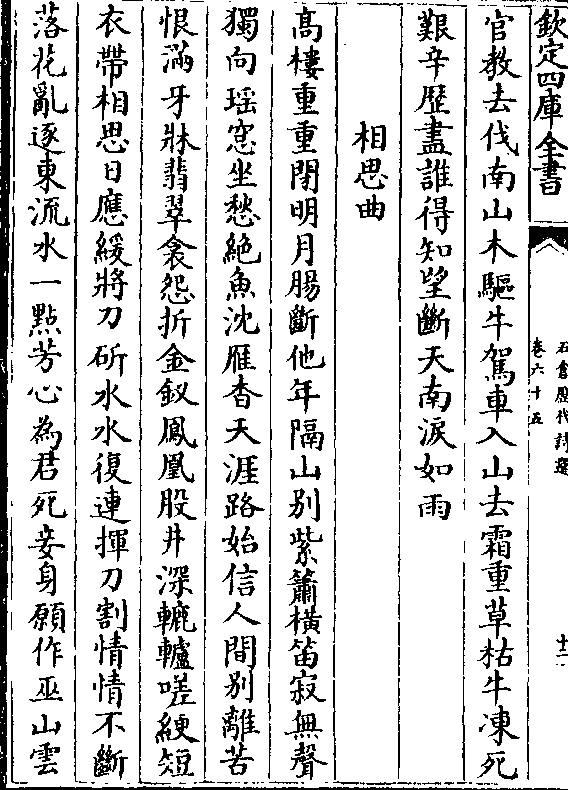 欽定四庫全書
石倉歷代詩選
卷六十五
十二
官教去伐南山木驅牛駕車入山去霜重草枯牛凍死
艱辛歷盡誰得知望斷天南淚如雨
相思曲
髙樓重重閉明月腸斷他年隔山別紫簫橫笛寂無聲
獨向瑶窓坐愁絶魚沈雁杳天涯路始信人間別離苦
恨滿牙牀翡翠衾怨折金釵鳳凰股井深轆轤嗟綆短
衣帶相思日應緩將刀斫水水復連揮刀割情情不斷
落花亂逐東流水一點芳心為君死妾身願作巫山雲